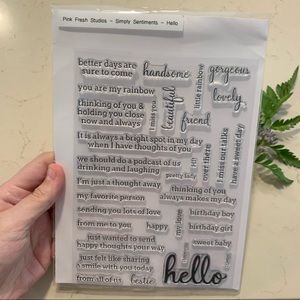 Pink Fresh Studios - Simply Sentiments - Hello
better days are
sure to come
handsome
gorgeous
you are my rainbow
little rainbow
lovely
thinking of you &
holding you close
now and always
I miss you
beautiful
friend
I miss our talks
have a sweet day
It is always a bright spot in my day
when I have thoughts of you
we should do a podcast of us
drinking and laughing
Hi!
over there
pretty lady
I'm just a thought away
thinking of you
always makes my day
my favorite person
sending you lots of love
my love
birthday boy
from me to you
happy
birthday girl
just wanted to send
happy thoughts your way
sweet baby
just felt like sharing
a smile with you today
hello
from all of us
bestie